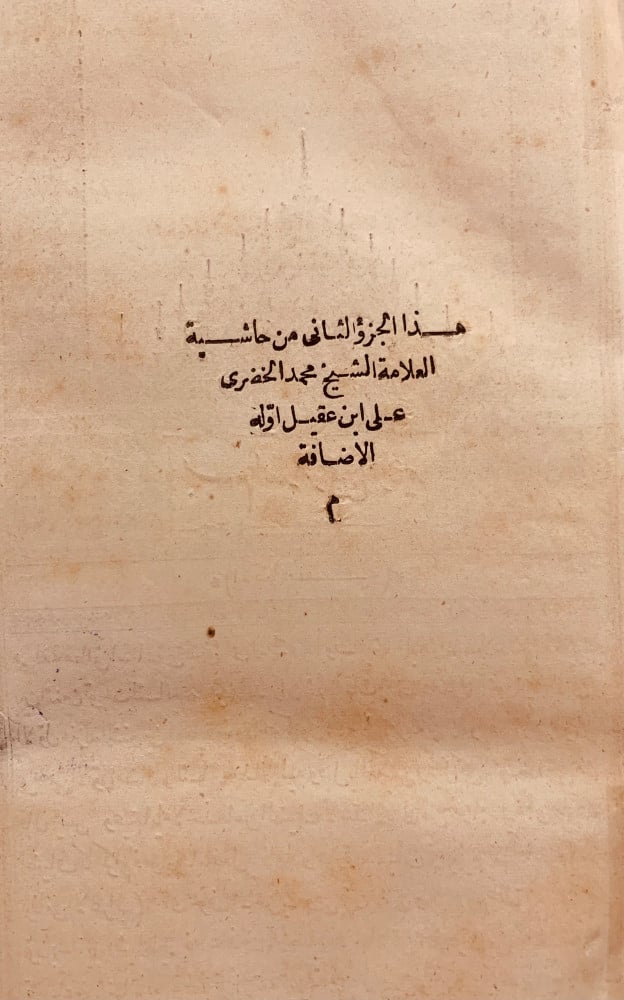 هذا الجزؤ الثانى من حاشية
العلامة الشيخ محمد الخضرى
على ابن عقيل اوّله
الاضافة
م